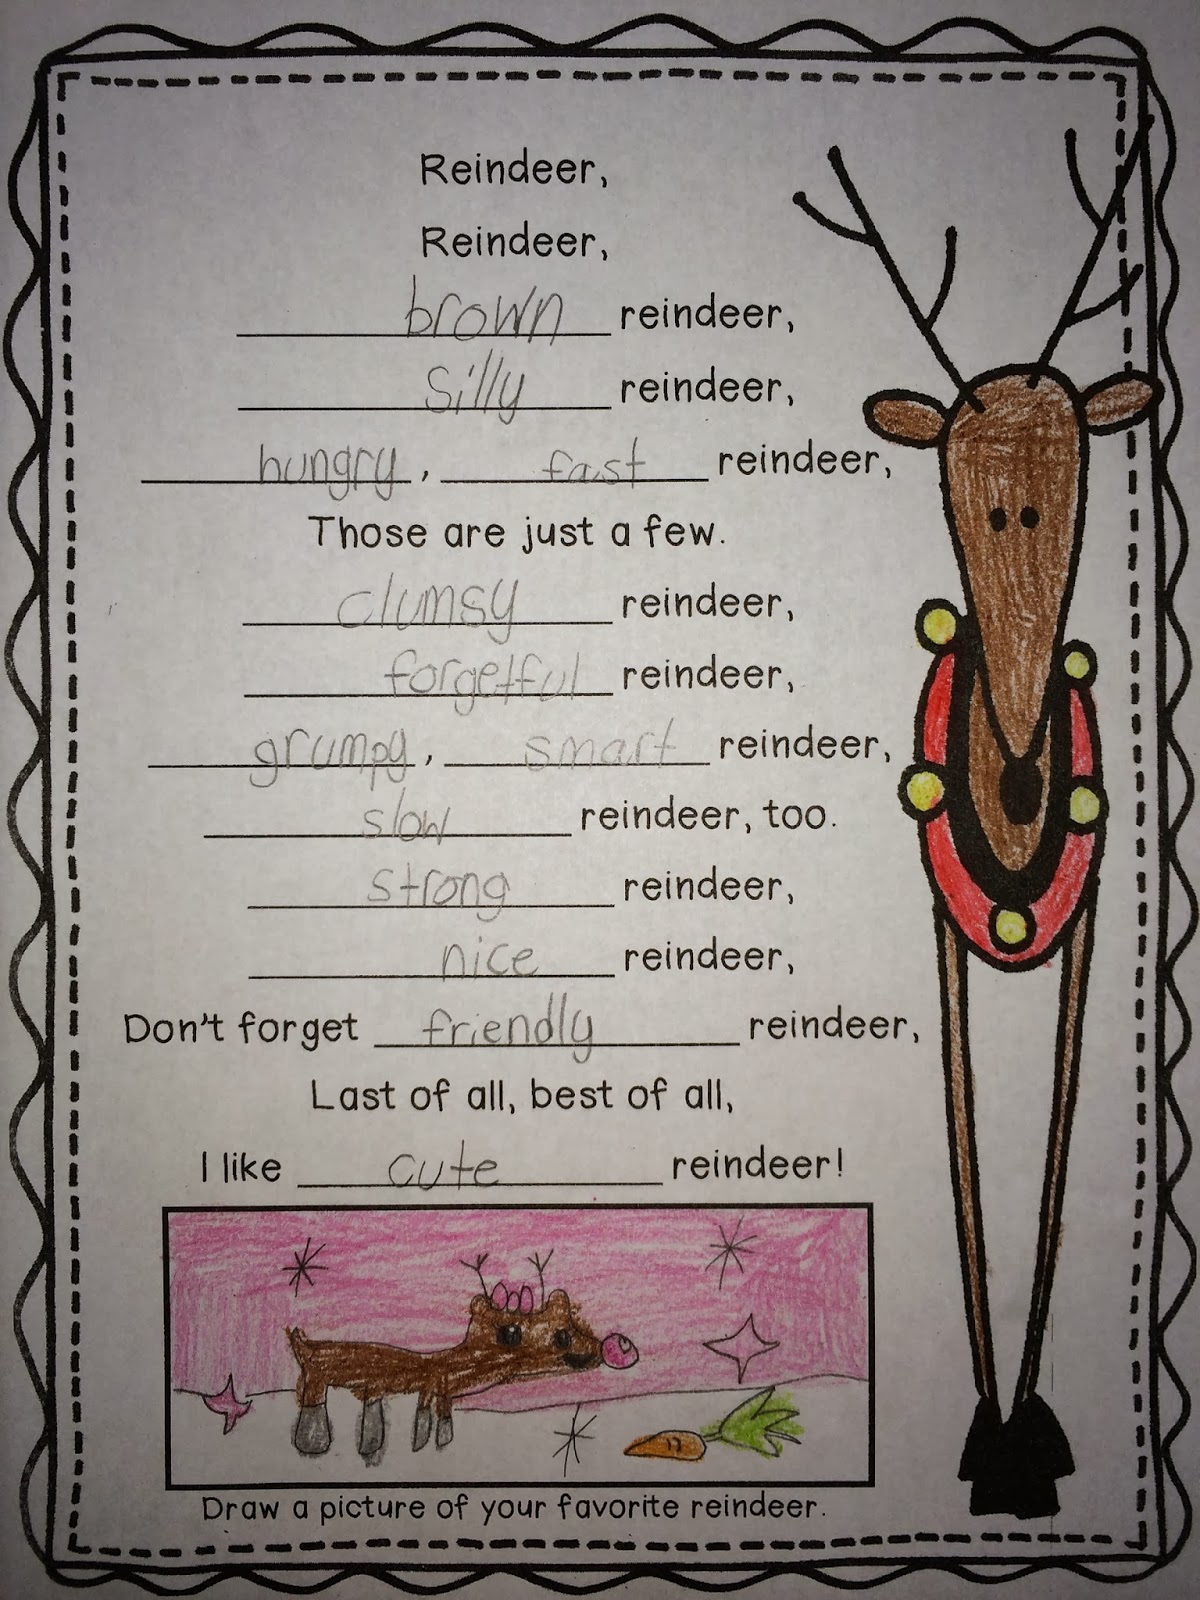 Reindeer,
Reindeer,
brown reindeer,
silly reindeer,
hungry, fast reindeer,
Those are just a few.
clumsy reindeer,
forgetful reindeer,
grumpy, smart reindeer,
slow reindeer, too.
strong reindeer,
nice reindeer,
Don't forget friendly reindeer,
Last of all, best of all,
I like cute reindeer!
Draw a picture of your favorite reindeer.